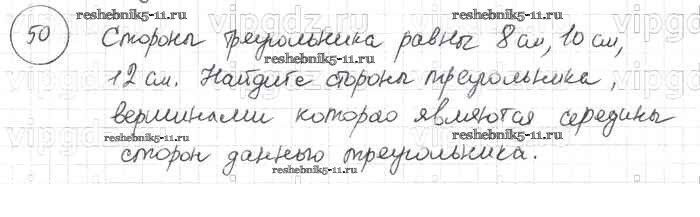 reshebnik5-11.ru reshebnik5-11.ru
50 Стороны треугольника равны 8 см, 10 см,
12 см. Найдите стороны треугольника,
вершинами которого являются середины
reshebnik5-11.ru
сторон данного треугольника.
reshebnik5-11.ru reshebnik5-11.ru